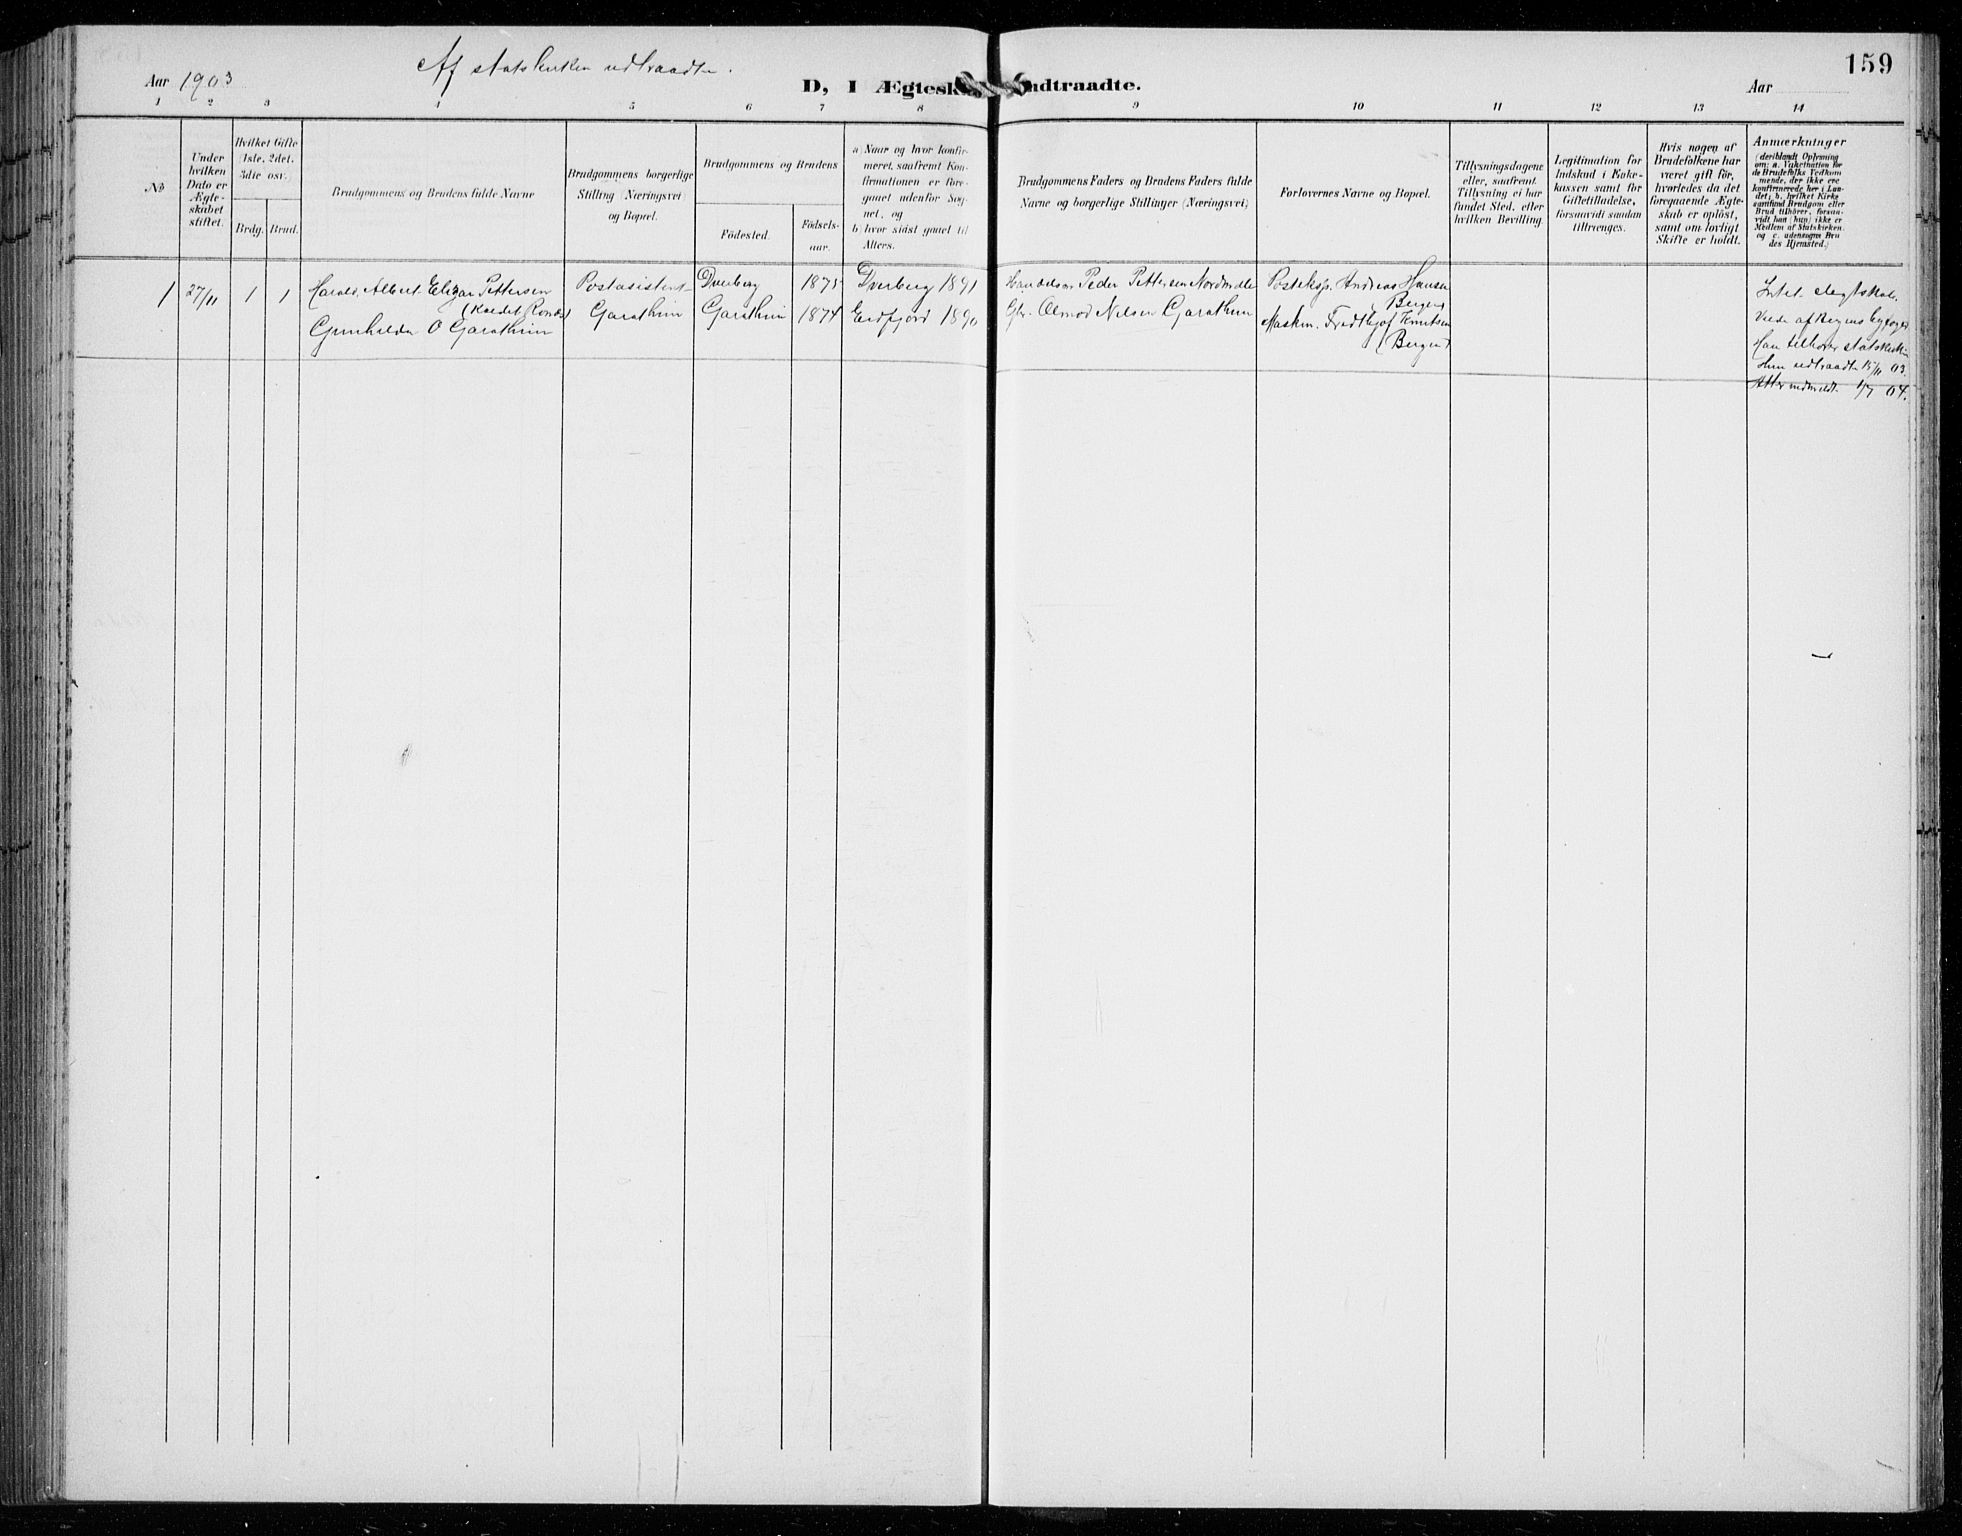 159
Af statskirken udtraadte.
Aar 1903
D, I Ægtesk ndtraadte.
Aar
1 2 3 4 5 6 7 8 9 10 11 12 13 14
No
Under
hvilken
Dato er
Ægte-
skabet
stiftet.
Hvilket Gifte
(1ste, 2det.
3die osv.)
Brdg. Brud.
Brudgommens og Brudens fulde Navne
Brudgommens borgerlige
Stilling (Næringsvei)
og Bopæl.
Brudgommens og Brudens
Födested.
Födsels-
aar.
a) Naar og hvor konfir-
meret, saafremt Kon-
firmationen er fore-
gaaet udenfor Sog-
net, og
b) hvor sidst gaaet til
Alters.
Brudgommens Faders og Brudens Faders fulde
Navne og borgerlige Stillinger (Næringsvei)
Forlovernes Navne og Bopæl.
Tillysningsdagene
eller, saafremt
Tillysning ei har
fundet Sted, efter
hvilken Bevilling.
Legitimation for
Indskud i Enke-
kassen samt for
Giftetilladelse,
forsaavidt saadan
tiltrænges.
Hvis nogen af
Brudefolkene har
været gift för,
hvorledes da det
foregaaende Ægte-
skab er oplöst,
samt om lovligt
Skifte er holdt.
Anmærkninger
(deriblandt Oplysning
om: a. Vakcination for
de Brudefolks Vedkom
mende, der ikke ere
konfirmerede her i Lan-
det; b. hvilket Kirke
samfund Brudgom eller
Brud tilhörer, forsaa-
vidt han (hun) ikke er
Medlem af Statskirken.
og c. udensogns Bru
des Hjemsted.)
1 27/11 1 1 Harald Albert Elizar Pettersen Postasistent Dverberg 1875 Dverberg 1891 Peder Pettersen Nordmele Posteksp. Andreas Hansen
(kaldet
Bergen)
Gunhilda O Garathun Garathun Garathun 1874 Eidfjord 1890 Gbr. Olmod Nilsen Garathun Maskin. Fredthjof Knutsen
(Bergen)
Intet slegtskab.
Viede af Bergens byfoged
Han tilhører statskirken
Hun udtraadte 15/11 03.
Atter indmeldt 1/7 04.